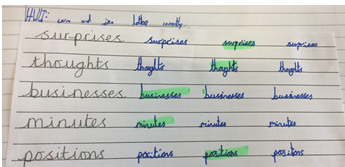 surprises surprises surprises surprises
thoughts thoghts thaghts thoghts
businesses businesses businesses businesses
minutes minutes minutes minutes
positions positions positions positions